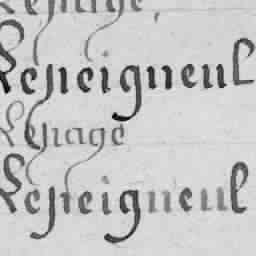 Lepeigneul
Lepage
Lepeigneul